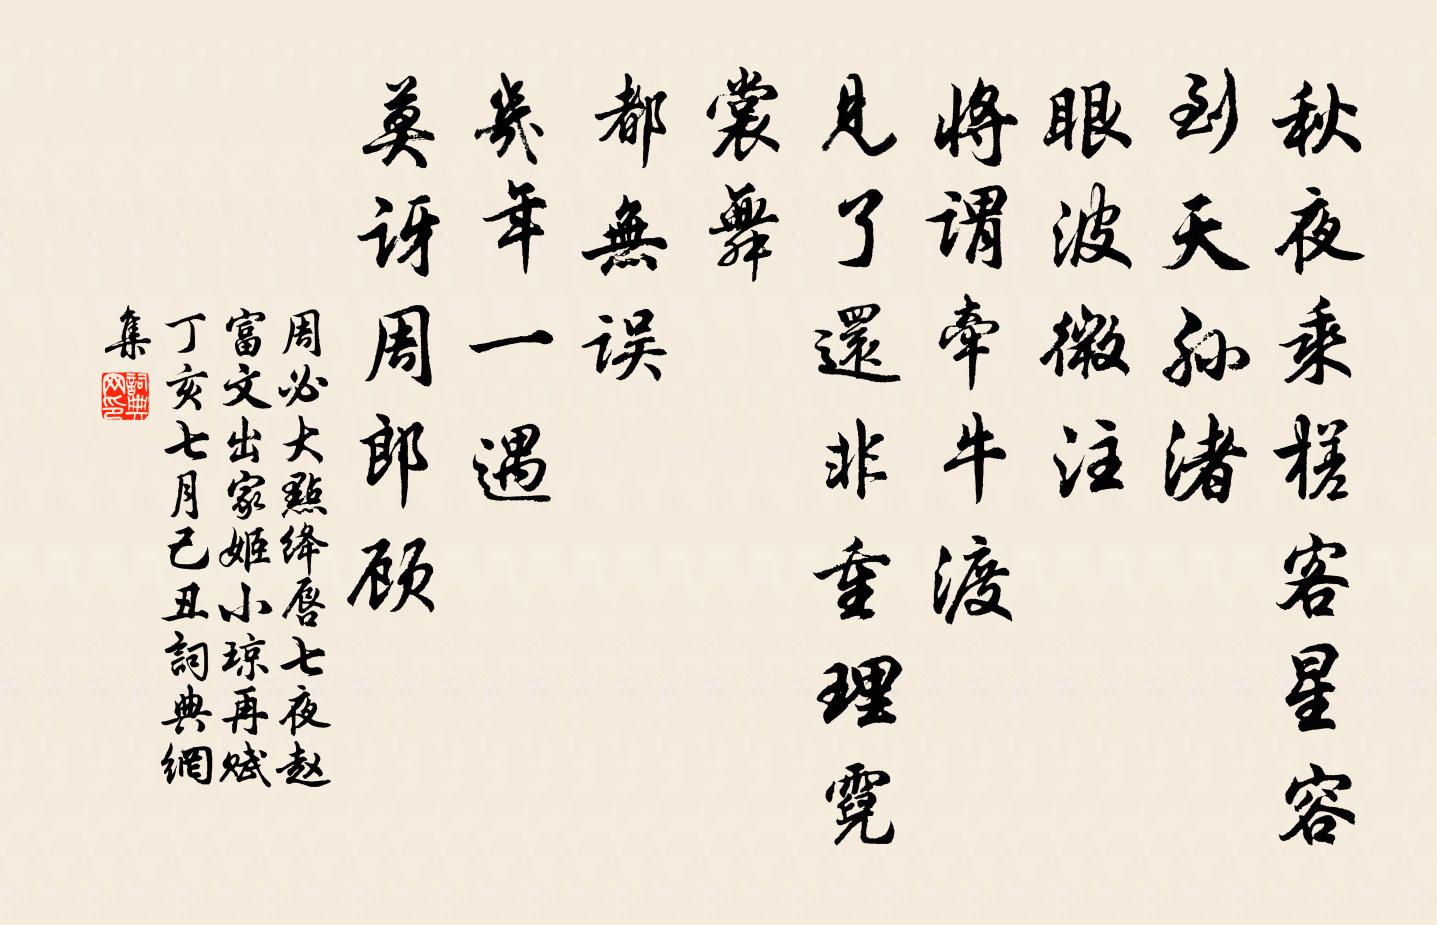 秋夜乘槎客星容
到天孙渚
眼波微注
将谓牵牛渡
見了還非重理霓
裳舞
都無误
幾年一遇
莫讶周郎顾
周必大點绛唇七夜赵
富文出家姬小琼再赋
丁亥七月己丑詞典網
集
詞典网印